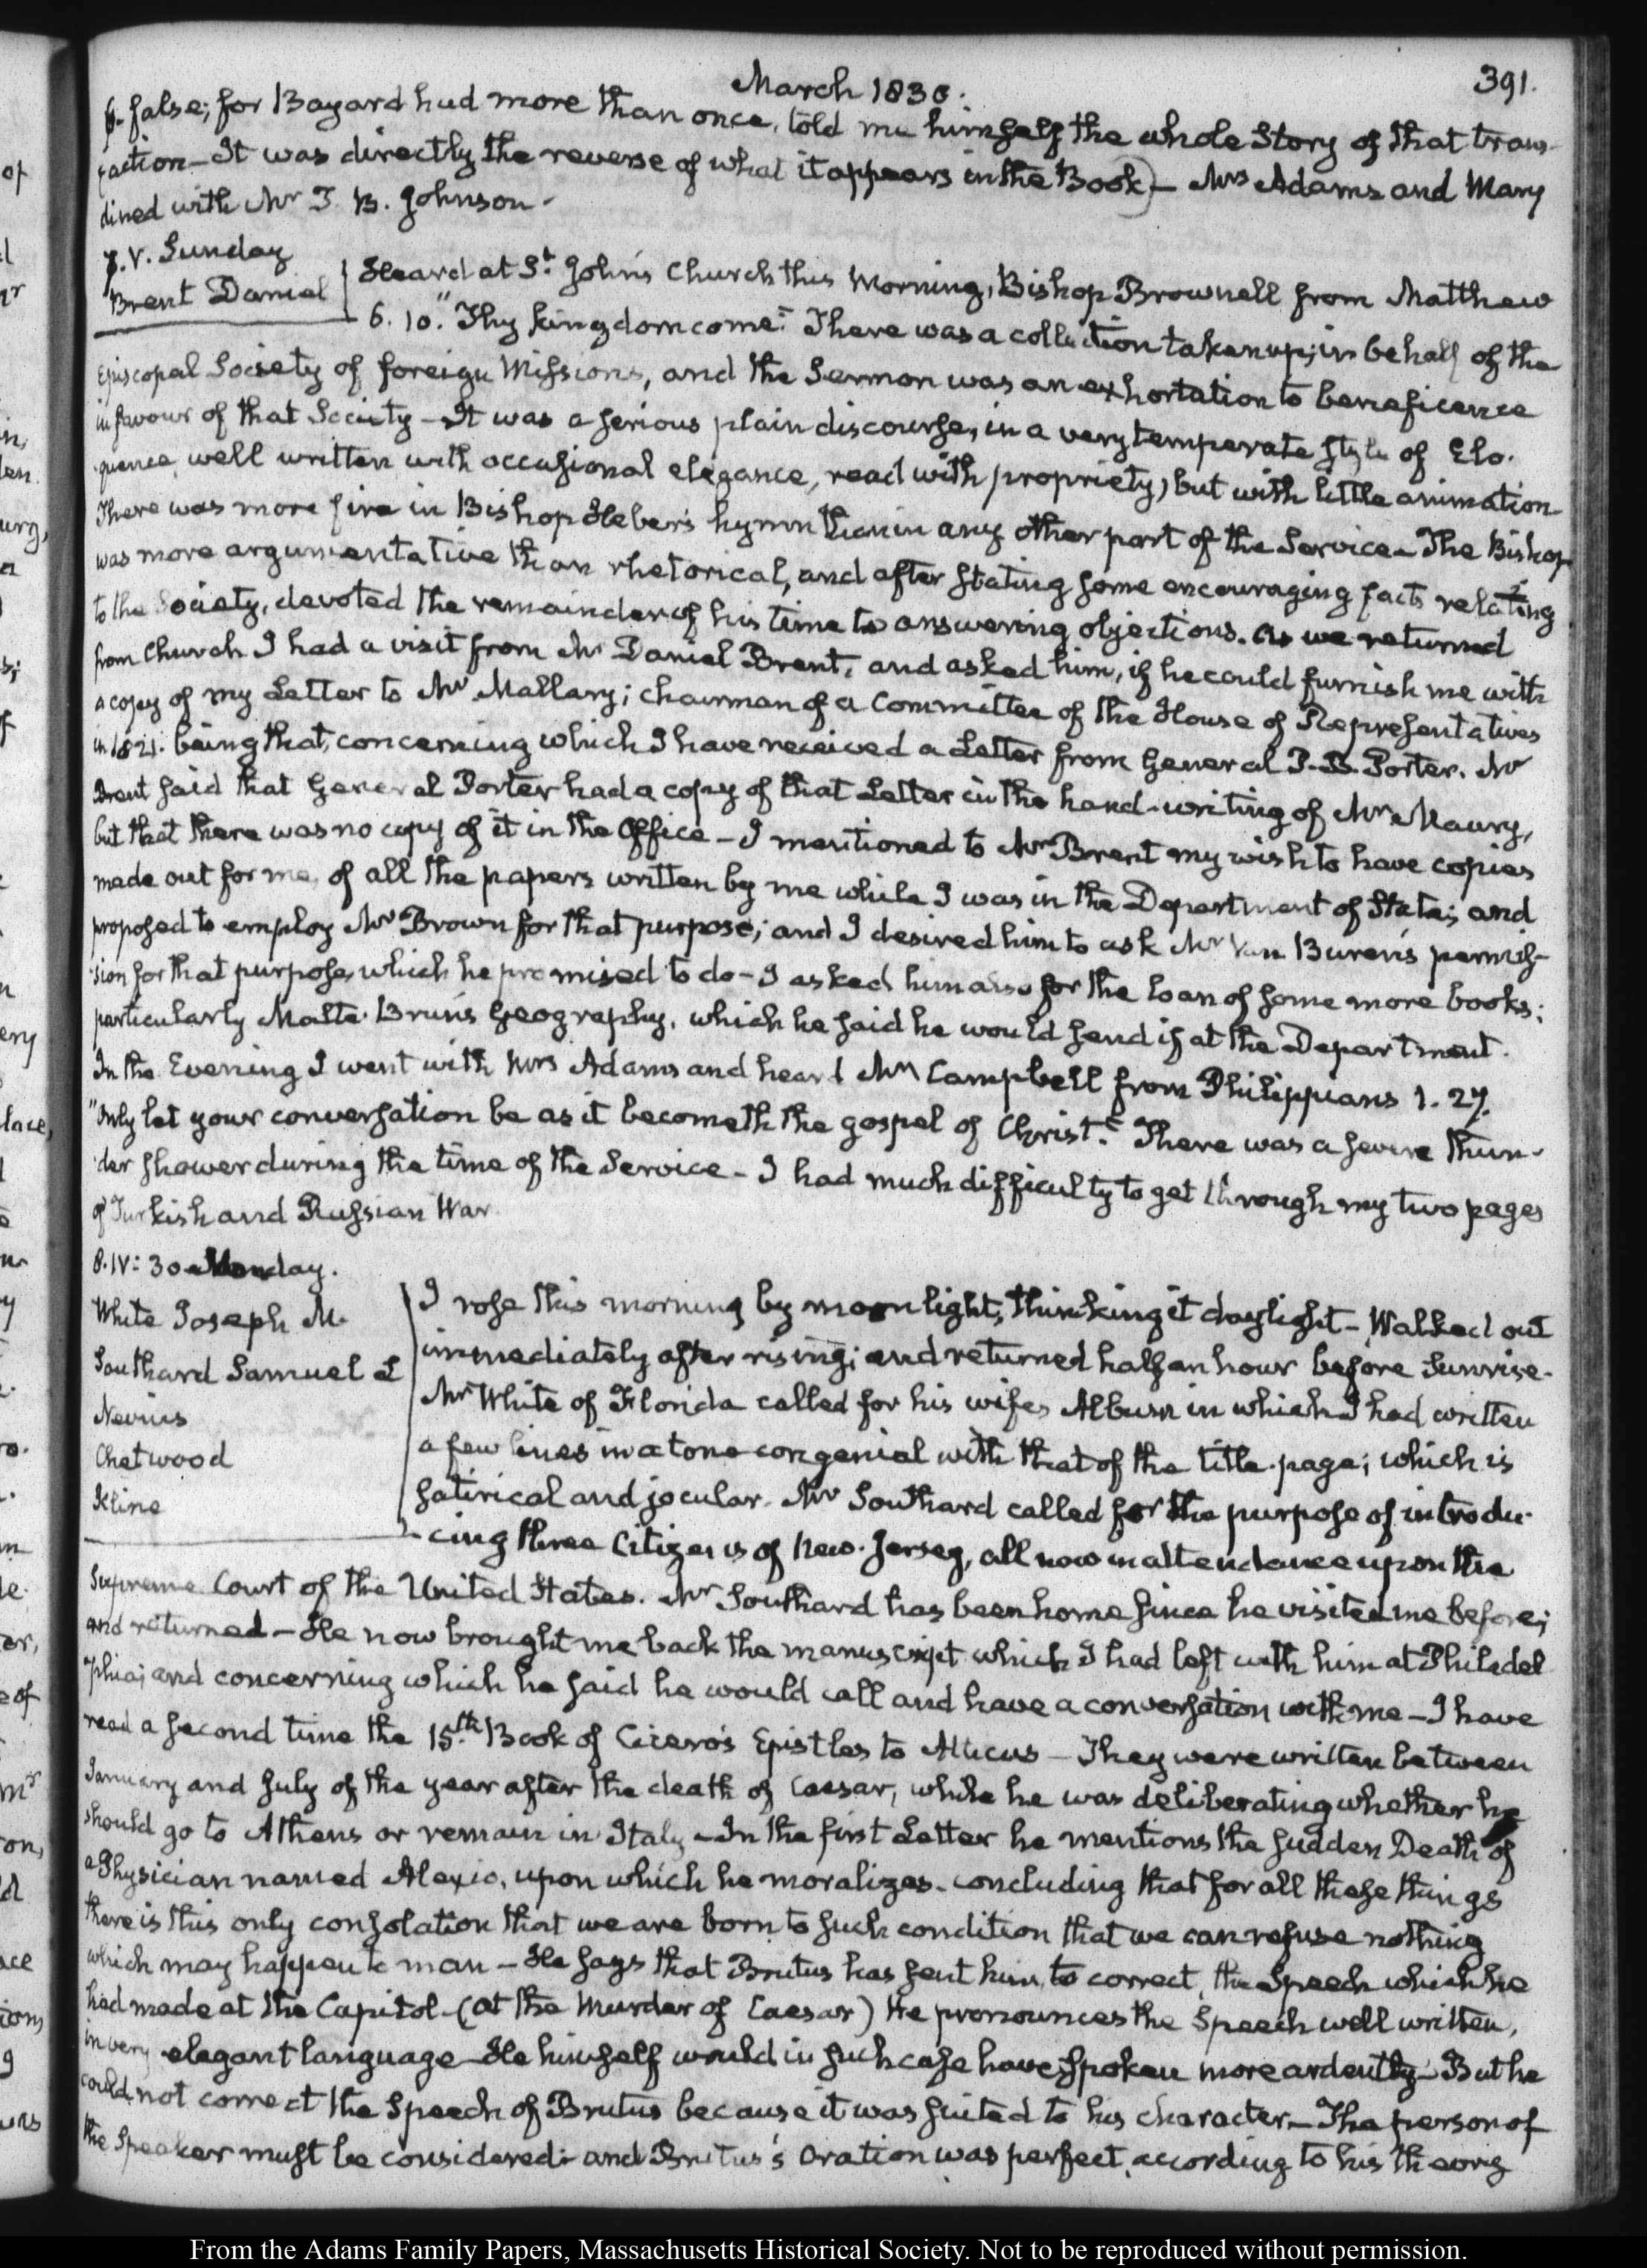 March 1830.
391.
false; for Bayard had more than once, told me himself the whole Story of that trans-
action — It was directly the reverse of what it appears in the Book) — Mrs Adams and Mary
dined with Mr T. B. Johnson.
7. V. Sunday
Brent Daniel
Heard at St. John's Church this Morning, Bishop Brownell from Matthew
6. 10. "Thy kingdom come." There was a collection taken up, in behalf of the
Episcopal Society of foreign Missions, and the Sermon was an exhortation to beneficence
in favour of that Society — It was a serious plain discourse, in a very temperate style of Elo-
quence, well written with occasional elegance, read with propriety, but with little animation —
There was more fire in Bishop Heber's hymn than in any other part of the Service — The Bishop
was more argumentative than rhetorical, and after stating some encouraging facts relating
to the Society, devoted the remainder of his time to answering objections. As we returned
from Church I had a visit from Mr Daniel Brent, and asked him, if he could furnish me with
a copy of my Letter to Mr Mallary; chairman of a Committee of the House of Representatives
in 1821. being that, concerning which I have received a Letter from General P. B. Porter. Mr
Brent said that General Porter had a copy of that Letter in the hand-writing of Mr Maury,
but that there was no copy of it in the Office — I mentioned to Mr Brent my wish to have copies
made out for me, of all the papers written by me while I was in the Department of State; and
proposed to employ Mr Brown for that purpose; and I desired him to ask Mr Van Buren's permis-
sion for that purpose, which he promised to do — I asked him also for the loan of some more books;
particularly Malte-Brun's Geography, which he said he would send if at the Department.
In the Evening I went with Mrs Adams and heard Mr Campbell from Philippians 1. 27.
"Only let your conversation be as it becometh the gospel of Christ." There was a severe thun-
der shower during the time of the Service — I had much difficulty to get through my two pages
of Turkish and Russian War.
8. IV: 30 Monday.
White Joseph M.
Southard Samuel L
Nevius
Chetwood
Kline
I rose this morning by moonlight, thinking it daylight — Walked out
immediately after rising; and returned half an hour before Sunrise.
Mr White of Florida called for his wife's Album in which I had written
a few lines in a tone congenial with that of the title page; which is
satirical and jocular. Mr Southard called for the purpose of introdu-
cing three Citizens of New-Jersey, all now in attendance upon the
Supreme Court of the United States. Mr Southard has been home since he visited me before;
and returned — He now brought me back the manuscript which I had left with him at Philadel-
phia; and concerning which he said he would call and have a conversation with me — I have
read a second time the 15th. Book of Cicero's Epistles to Atticus — They were written between
January and July of the year after the death of Caesar, while he was deliberating whether he
should go to Athens or remain in Italy — In the first Letter he mentions the sudden Death of
a Physician named Alexio, upon which he moralizes — concluding that for all these things
there is this only consolation that we are born to such condition that we can refuse nothing
which may happen to man — He says that Brutus has sent him, to correct, the Speech which he
had made at the Capitol — (at the Murder of Caesar) He pronounces the Speech well written,
in very elegant language — He himself would in such case have spoken more ardently — But he
could not correct the Speech of Brutus because it was suited to his character — The person of
the Speaker must be considered: and Brutus's Oration was perfect, according to his theory
From the Adams Family Papers, Massachusetts Historical Society. Not to be reproduced without permission.